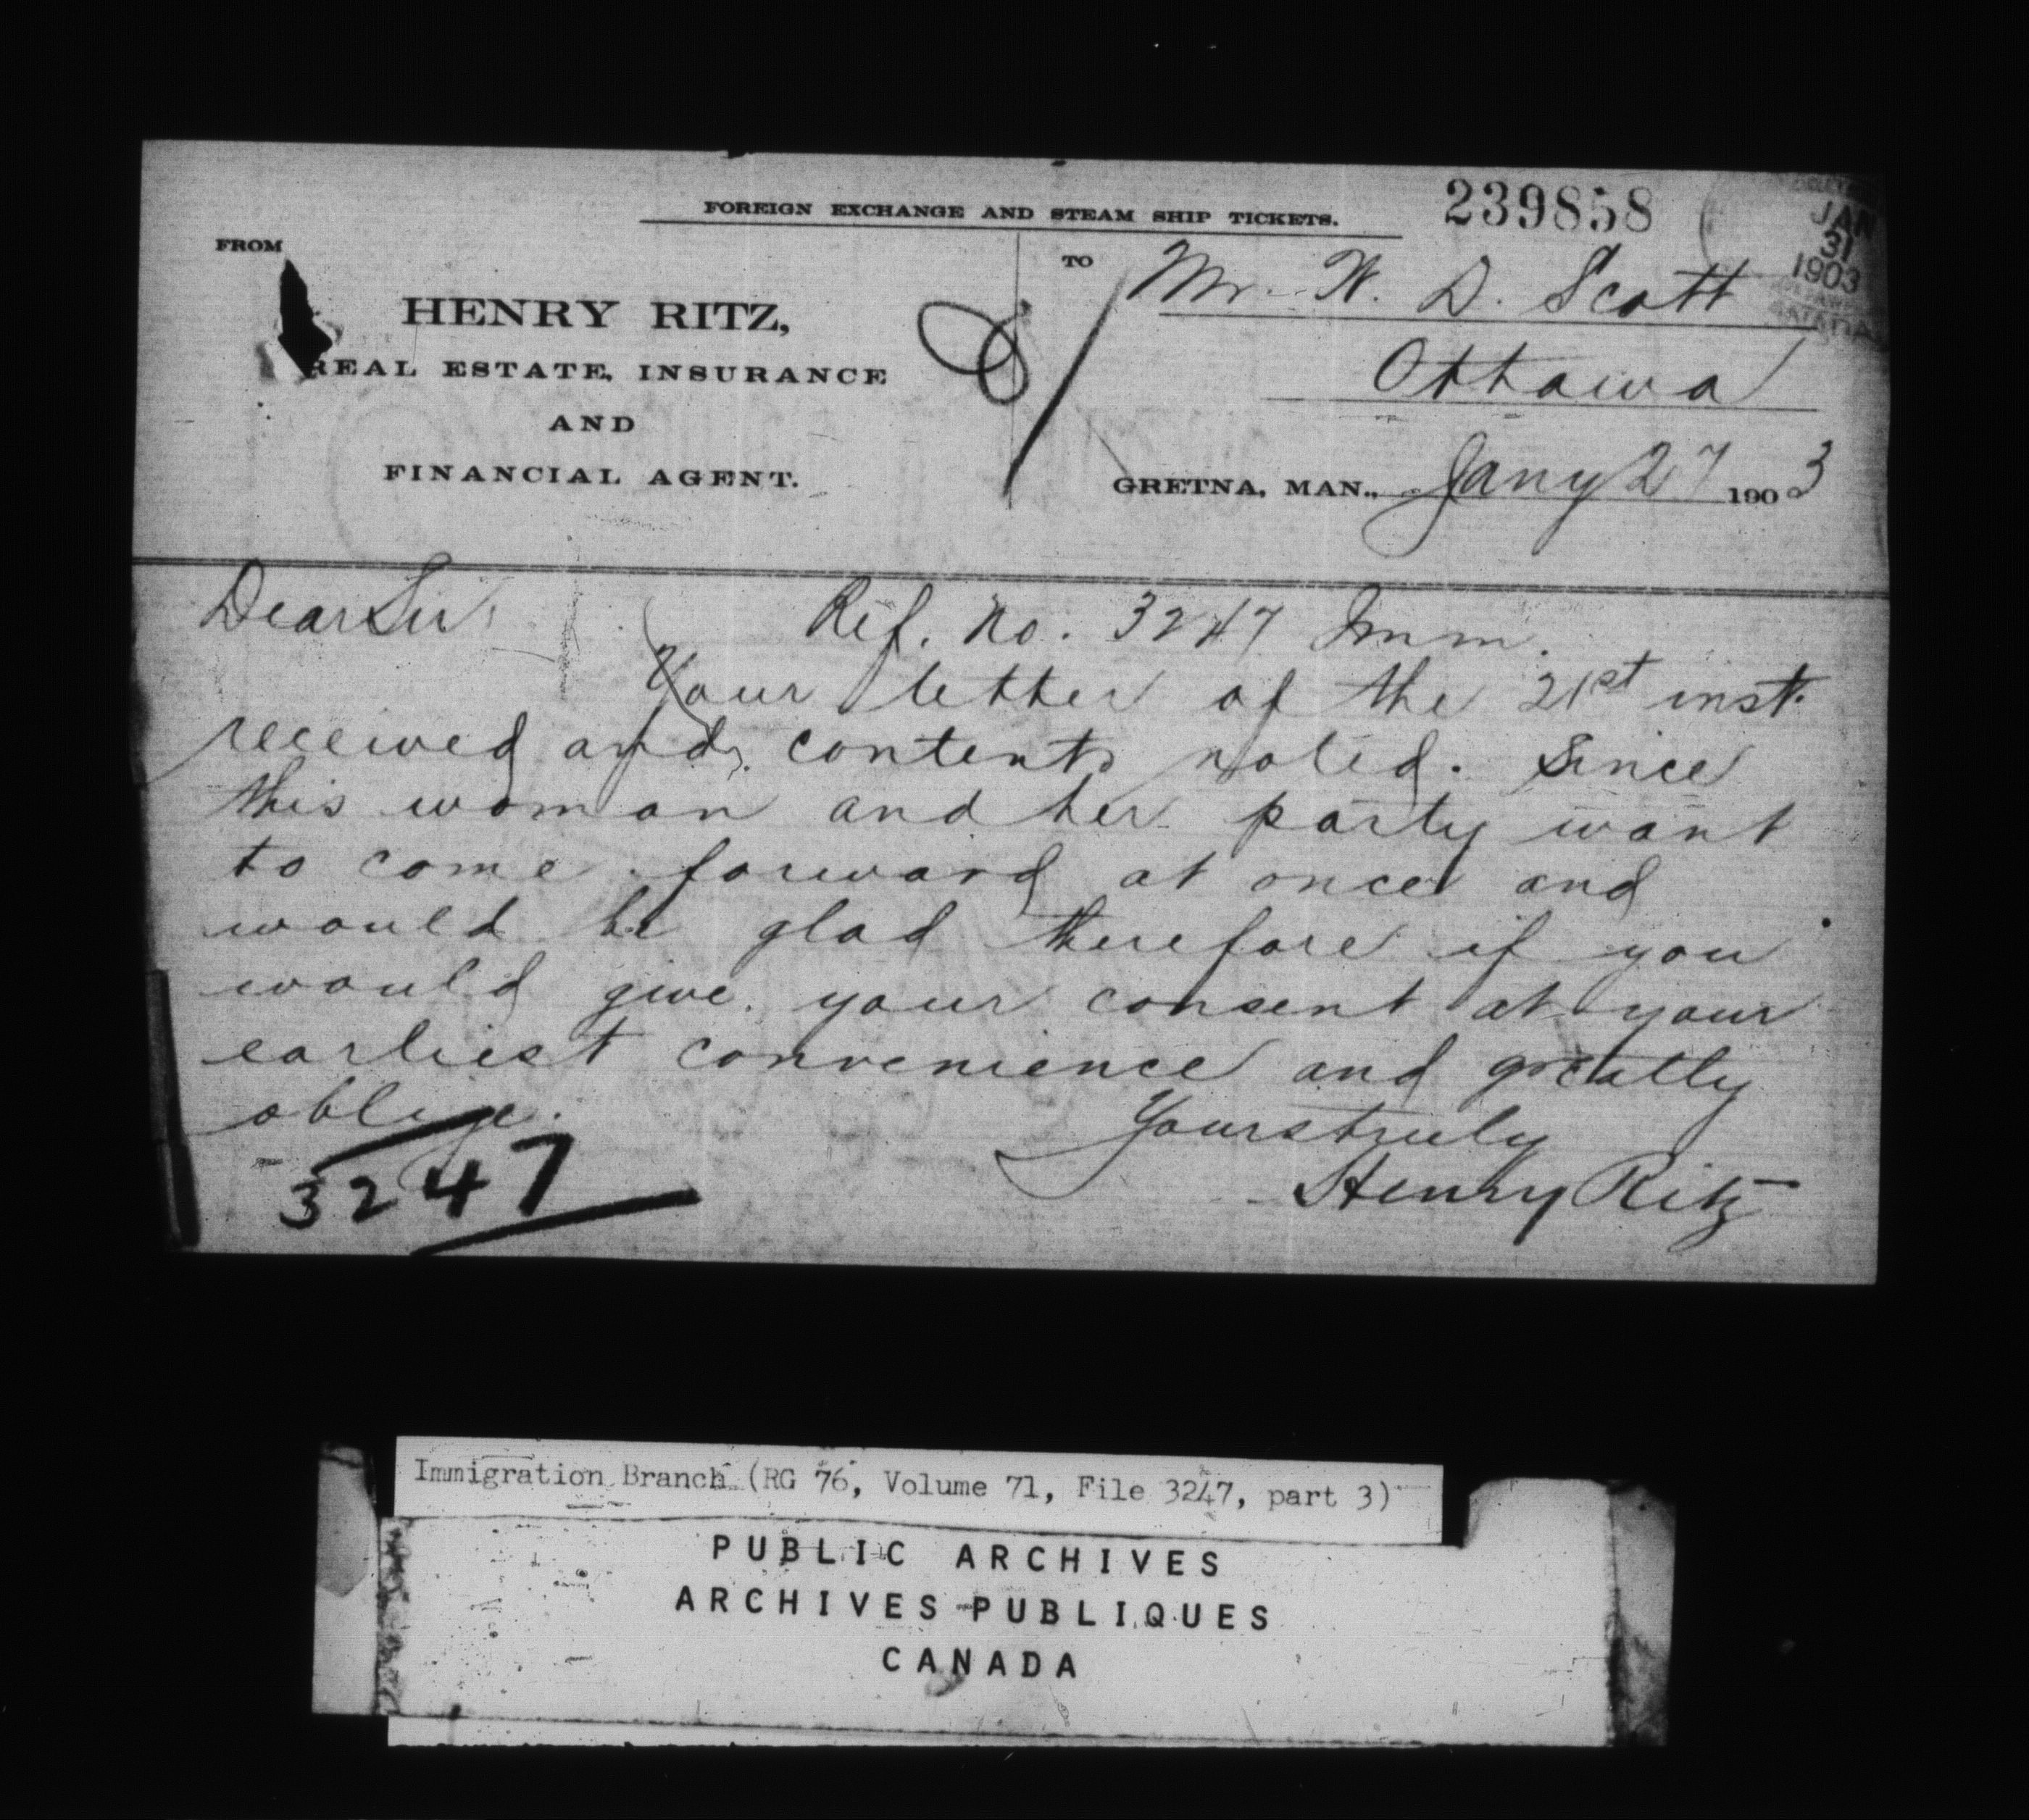 FOREIGN EXCHANGE AND STEAM SHIP TICKETS.
239858
JAN
31
1903
FROM
HENRY RITZ,
REAL ESTATE, INSURANCE
AND
FINANCIAL AGENT.
TO
Mr. W. D. Scott
Ottawa
GRETNA, MAN., Jany 27 1903
Dear Sir: Ref. No. 3247 Imm.
Your letter of the 21st inst.
received and contents noted. Since
this woman and her party want
to come forward at once and
would be glad therefore if you
would give your consent at your
earliest convenience and greatly
oblige.
Yours truly
Henry Ritz
3247
Immigration Branch (RG 76, Volume 71, File 3247, part 3)
PUBLIC ARCHIVES
ARCHIVES PUBLIQUES
CANADA